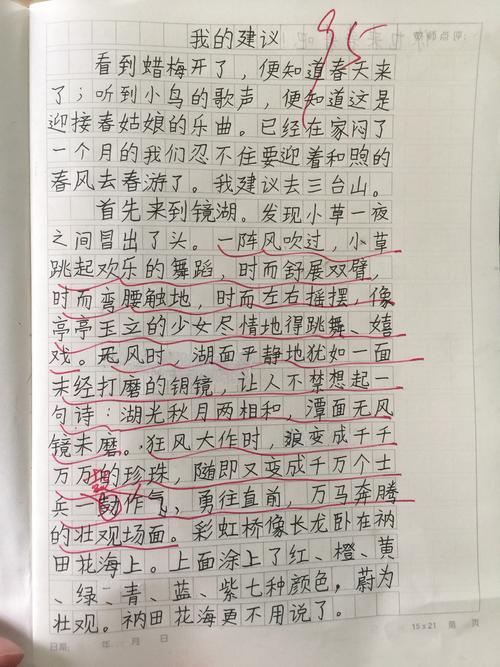 我的建议
95
看到蜡梅开了，便知道春天来
了；听到小鸟的歌声，便知道这是
迎接春姑娘的乐曲。已经在家闷了
一个月的我们忍不住要迎着和煦的
春风去春游了。我建议去三台山。
首先来到镜湖。发现小草一夜
之间冒出了头。一阵风吹过，小草
跳起欢乐的舞蹈，时而舒展双臂，
时而弯腰触地，时而左右摇摆，像
亭亭玉立的少女尽情地得跳舞、嬉
戏。无风时，湖面平静地犹如一面
未经打磨的铜镜，让人不禁想起一
句诗：湖光秋月两相和，潭面无风
镜未磨。狂风大作时，浪变成千千
万万的珍珠，随即又变成千万个士
兵一鼓作气，勇往直前，万马奔腾
的壮观场面。彩虹桥像长龙卧在衲
田花海上。上面涂上了红、橙、黄
、绿、青、蓝、紫七种颜色，蔚为
壮观。衲田花海更不用说了。
15x21 第 页
日期： 年 月 日